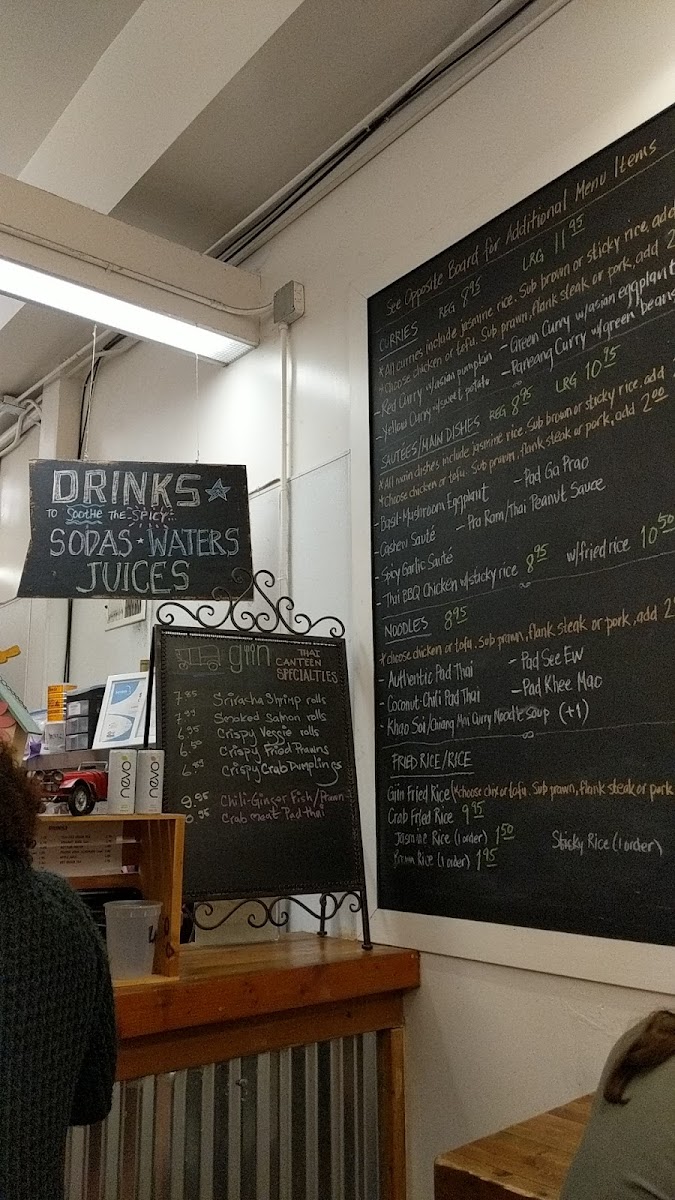 DRINKS
TO Soothe THE SPICY
SODAS * WATERS
JUICES
giin
THAI
CANTEEN
SPECIALTIES
7.85 Sriracha Shrimp rolls
Smoked Salmon rolls
6.95 Crispy Veggie rolls
6.50 Crispy Fried Prawns
Crispy Crab Dumplings
9.95 Chili-Ginger Fish/Prawn
Crab meat Pad Thai
nevo
nevo
See Opposite Board for Additional Menu Items
CURRIES REG 8.95 LRG 11.95
*All curries include jasmine rice. Sub brown or sticky rice, add
*Choose chicken or tofu. Sub prawn, flank steak or pork, add 2
- Red Curry w/asian pumpkin - Green Curry w/asian eggplant
- Yellow Curry w/sweet potato - Panang Curry w/green beans
SAUTEES/MAIN DISHES REG 8.95 LRG 10.95
*All main dishes include jasmine rice. Sub brown or sticky rice. add
*Choose chicken or tofu. Sub prawn, flank steak or pork, add 2.00
- Basil-Mushroom Eggplant - Pad Ga Prao
- Cashew Sauté - Pra Ram/Thai Peanut Sauce
- Spicy Garlic Sauté
- Thai BBQ Chicken w/sticky rice 8.95 w/fried rice 10.50
NOODLES 8.95
*choose chicken or tofu. Sub prawn, flank steak or pork, add 2
- Authentic Pad Thai - Pad See Ew
- Coconut-Chili Pad Thai - Pad Khee Mao
- Khao Soi/Chiang Mai Curry Noodle Soup (+1)
FRIED RICE/RICE
Giin Fried Rice (*choose chix or tofu. Sub prawn, flank steak or pork
Crab Fried Rice 9.95
Jasmine Rice (1 order) 1.50 Sticky Rice (1 order)
Brown Rice (1 order) 1.95